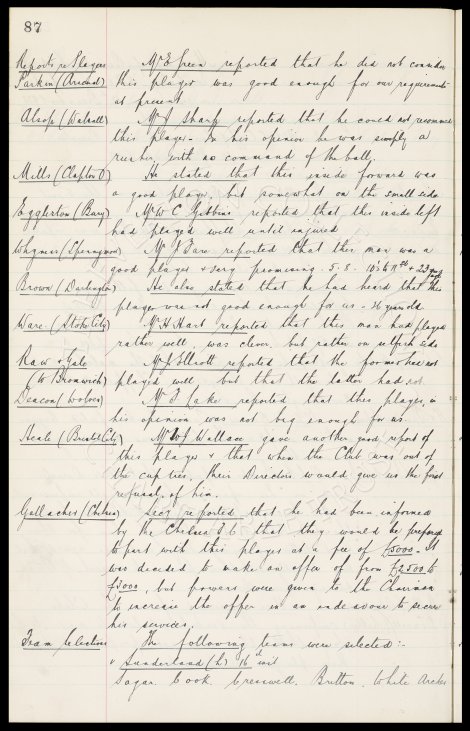 87
Reports re Players Mr E Green reported that he did not consider
Parkin (Arsenal) this player was good enough for our requirements
at present.
Alsop (Walsall) Mr J Sharp reported that he could not recommend
this player - In his opinion he was simply a
rusher with no command of the ball.
Mills (Clapton O) He stated that this inside forward was
a good player, but somewhat on the small side
Eggleston (Bury) Mr W C Gibbins reported that this inside left
had played well until injured
(Spennymoor) Mr J Fare reported that this man was a
good player & very promising. 5-8 - 10st & 23 yrs
Brown (Darlington) He also stated that he had heard that this
player was not good enough for us - 26 years old
Ware (Stoke City) Mr H Hart reported that this man had played
rather well, was clever, but rather on selfish side
Raw & Gale Mr J Elliott reported that the former had not
(W Bromwich) played well, but that the latter had not.
Deacon (Wolves) Mr T Cake reported that this player, in
his opinion was not big enough for us.
Neale (Bristol City) Mr W J Wallace gave another good report of
this player & that when the Club was out of
the cup ties, their Directors would give us the first
refusal of him.
Gallacher (Chelsea) Secy reported that he had been informed
by the Chelsea F C that they would be prepared
to part with this player at a fee of £5000 - It
was decided to make an offer of from £2500 to
£3000, but powers were given to the Chairman
to increase the offer in an endeavour to secure
his services.
Team Selections The following teams were selected:-
v Sunderland (h) 16th inst
Sagar. Cook. Cresswell. Britton. White Archer